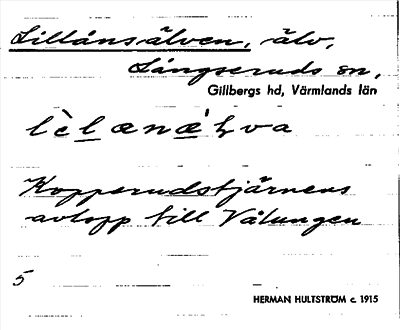 Lillånsälven, älv,
Långseruds sn,
Gillbergs hd, Värmlands län
Kopperudstjärnens
avlopp till Vålungen
5
HERMAN HULTSTRÖM c. 1915